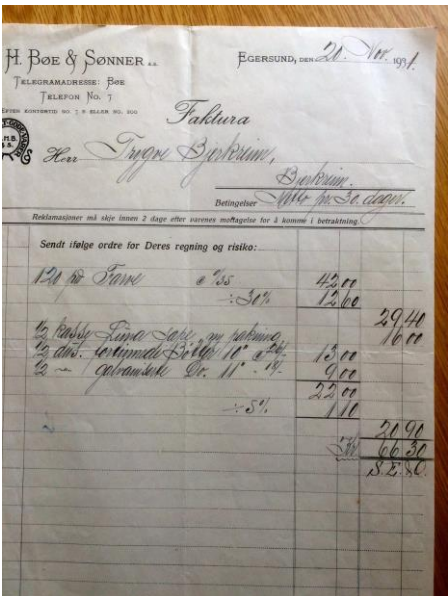 H. BØE & SØNNER A.S.
EGERSUND, DEN 20. Nov. 1931.
TELEGRAMADRESSE: BØE
TELEFON NO. 7
EFTER KONTORTID NO. 7 B ELLER NO. 200
Faktura
Herr Trygve Bjerkreim,
Bjerkreim.
Betingelser Netto pr. 30 dager.
Reklamasjoner må skje innen 2 dage efter varenes mottagelse for å komme i betraktning.
Sendt ifølge ordre for Deres regning og risiko:
120 Farve à -/35 42 00
÷ 30% 12 60
29 40
1/2 kasse Luna Sape, ny pakning 16 00
1/2 dus. fortinnede Bøtter 10" à 26/- 13 00
1/2 " galvaniserte Do. 11" - 18/- 9 00
22 00
÷ 5% 1 10
20 90
Kr. 66 30
S. E. & O.